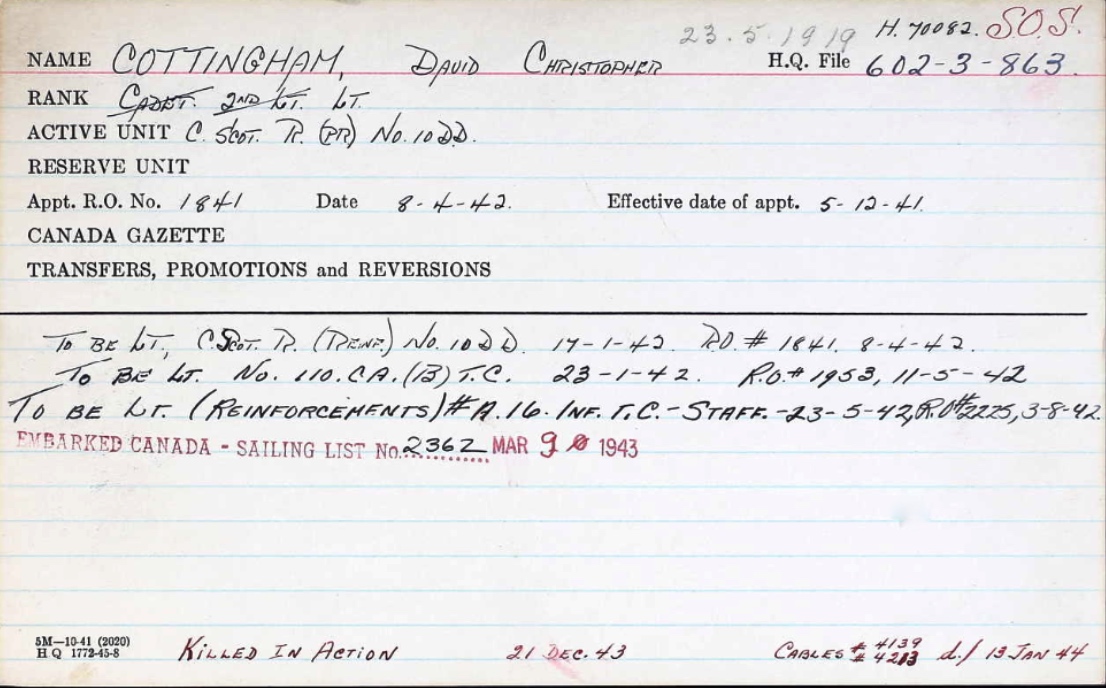 23.5.1919 H.70082. S.O.S.
NAME COTTINGHAM, DAVID CHRISTOPHER H.Q. File 602-3-863.
RANK CADET. 2ND LT. LT.
ACTIVE UNIT C. SCOT. R. (PR) No. 10 D.D.
RESERVE UNIT
Appt. R.O. No. 1841 Date 8-4-42. Effective date of appt. 5-12-41.
CANADA GAZETTE
TRANSFERS, PROMOTIONS and REVERSIONS
TO BE LT., C. SCOT. R. (REINF.) No. 10 D D. 17-1-42. R.O. # 1841. 8-4-42.
TO BE LT. No. 110. C.A. (B) T.C. 23-1-42. R.O.# 1953, 11-5-42
TO BE LT. (REINFORCEMENTS) # A.16. INF. T.C. - STAFF. - 23-5-42, R.O# 2225, 3-8-42.
EMBARKED CANADA - SAILING LIST No. 2362 MAR 9 1943
5M—10-41 (2020)
H Q 1772-45-8
KILLED IN ACTION 21 DEC. 43 CABLES # 4139 # 4213 d./ 13 JAN 44